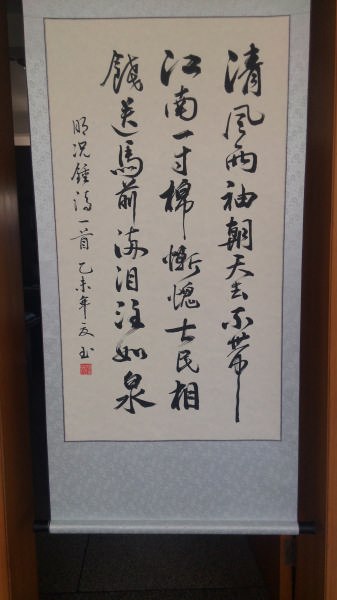 清風两袖朝天去不带
江南一寸棉慚愧士民相
餞送馬前洒泪注如泉
明况鍾诗一首 乙未年